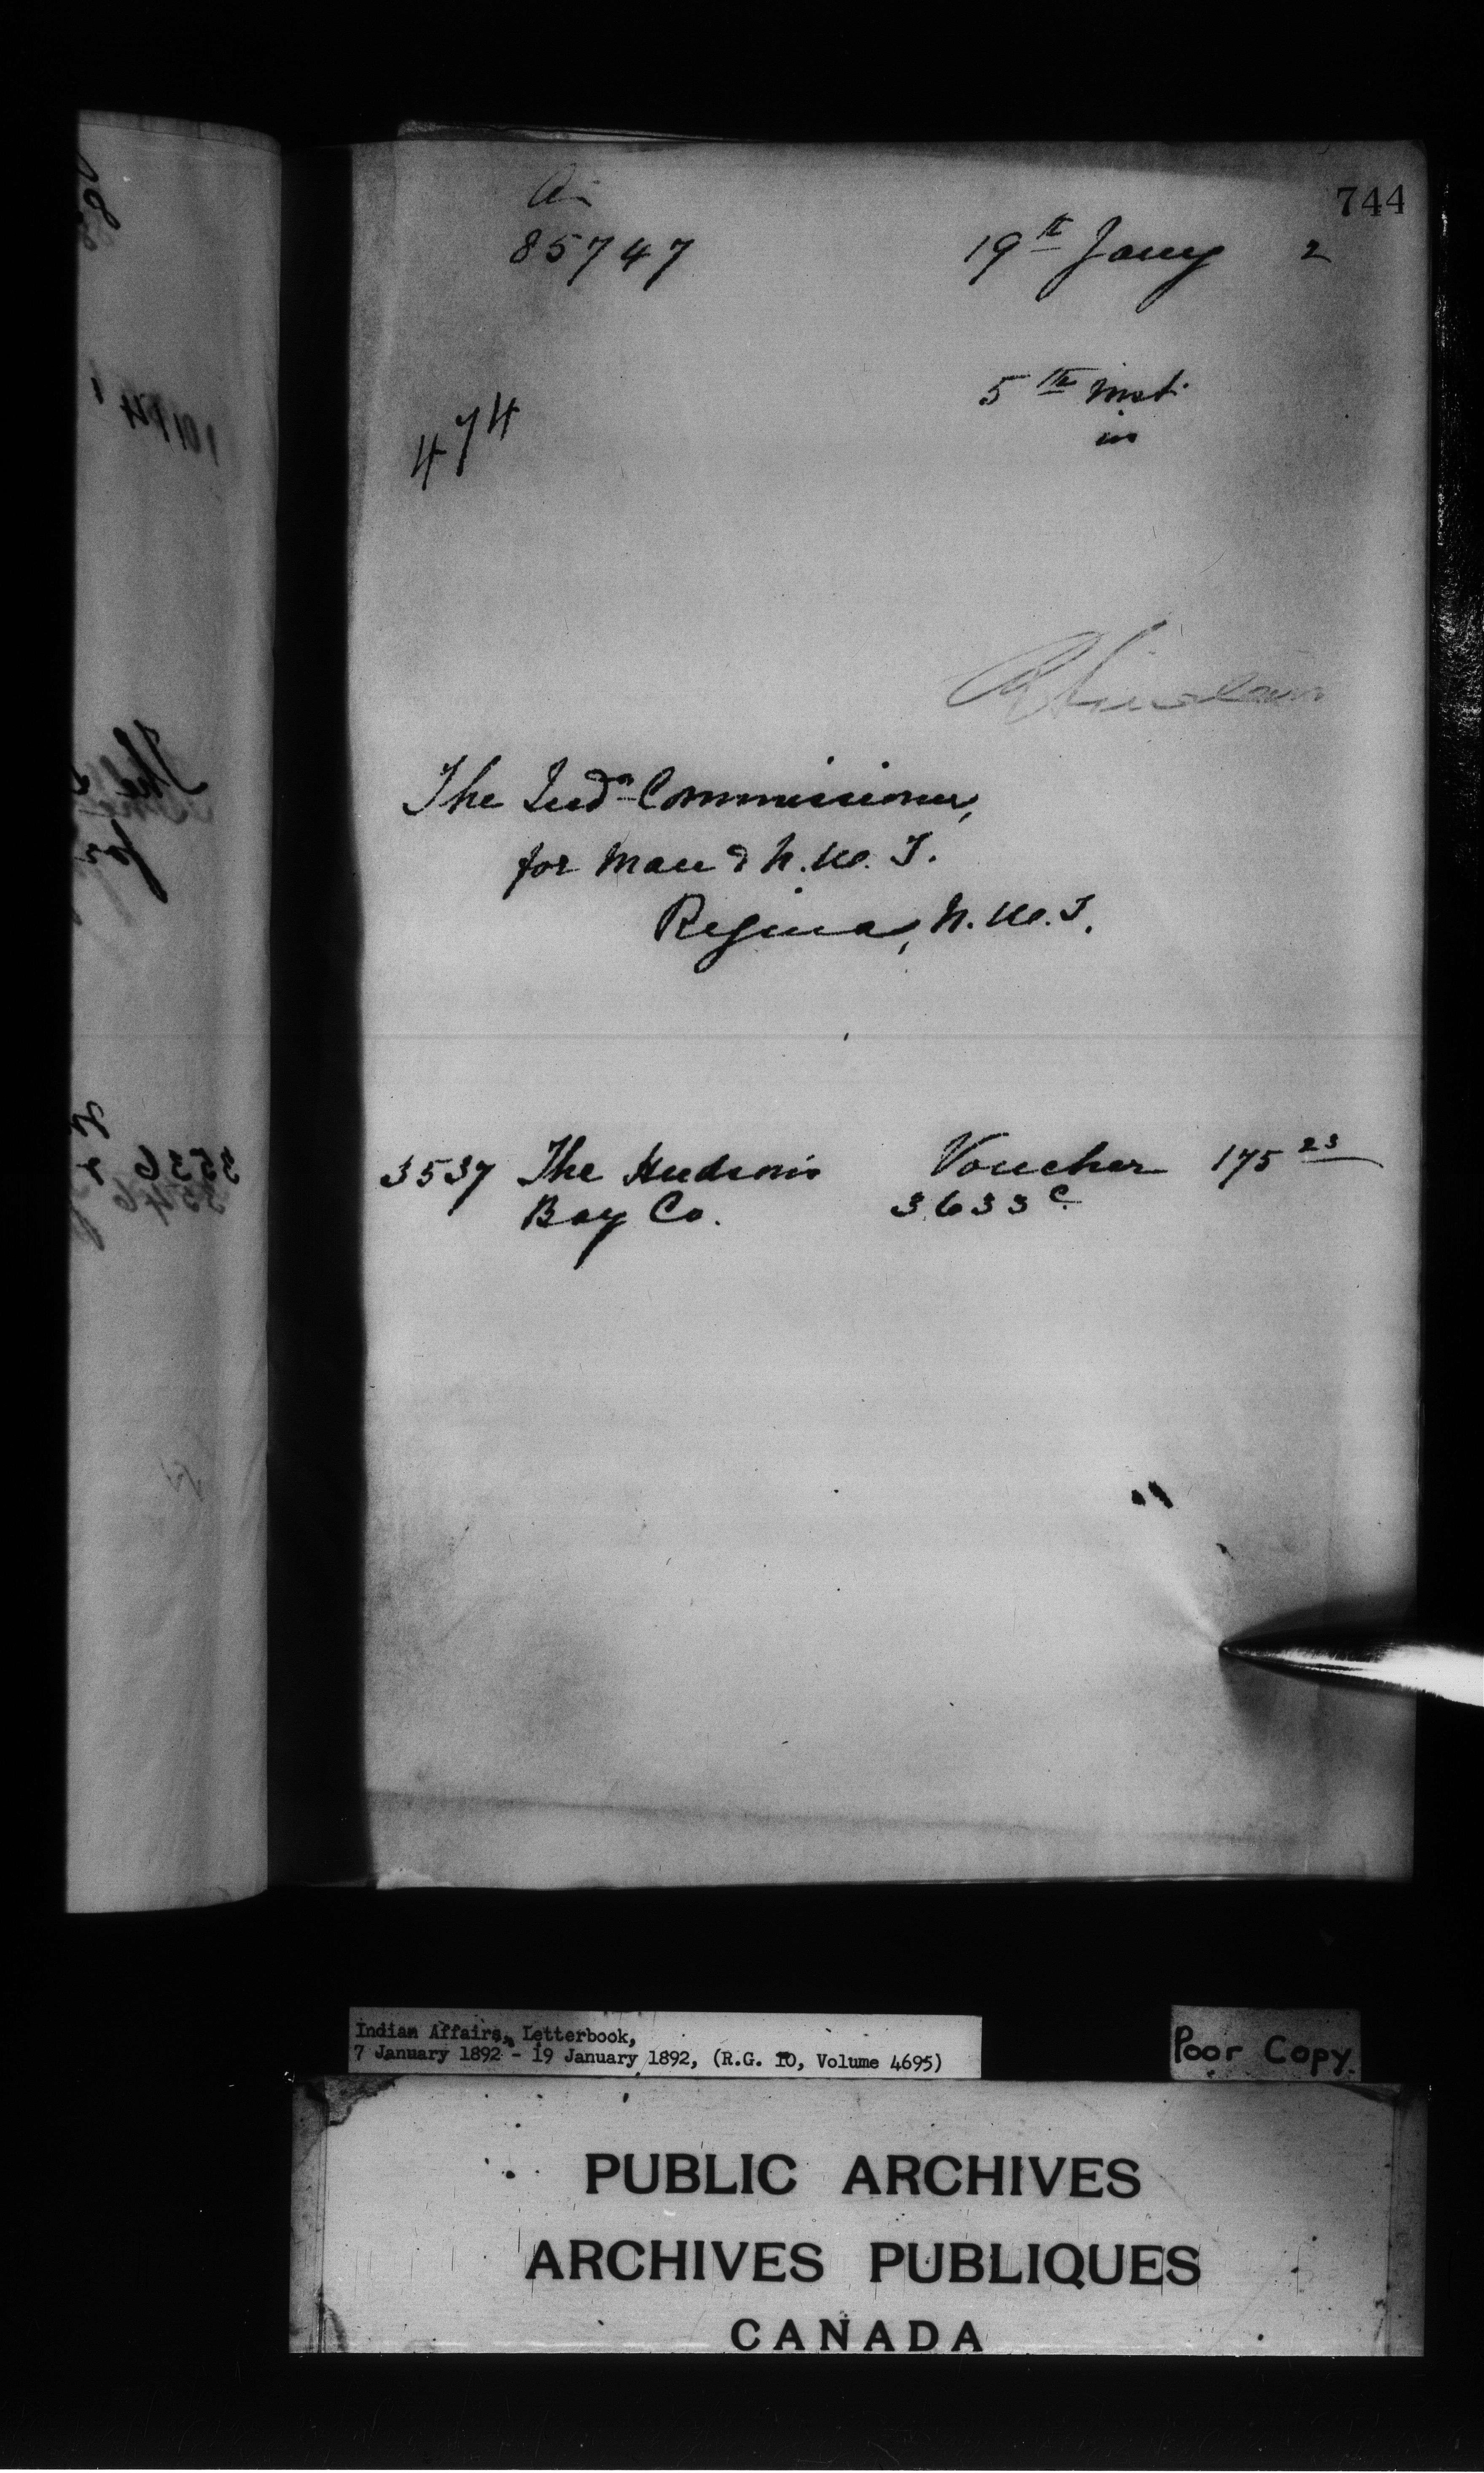 744
85747 19th Jany 2
5th inst
in
474
The Indn Commissioner,
for Man & N.W.T.
Regina, N.W.T.
3537 The Hudson's Voucher 175 23
Bay Co. 3633 c.
Indian Affairs, Letterbook,
7 January 1892 - 19 January 1892, (R.G. 10, Volume 4695)
Poor Copy.
PUBLIC ARCHIVES
ARCHIVES PUBLIQUES
CANADA